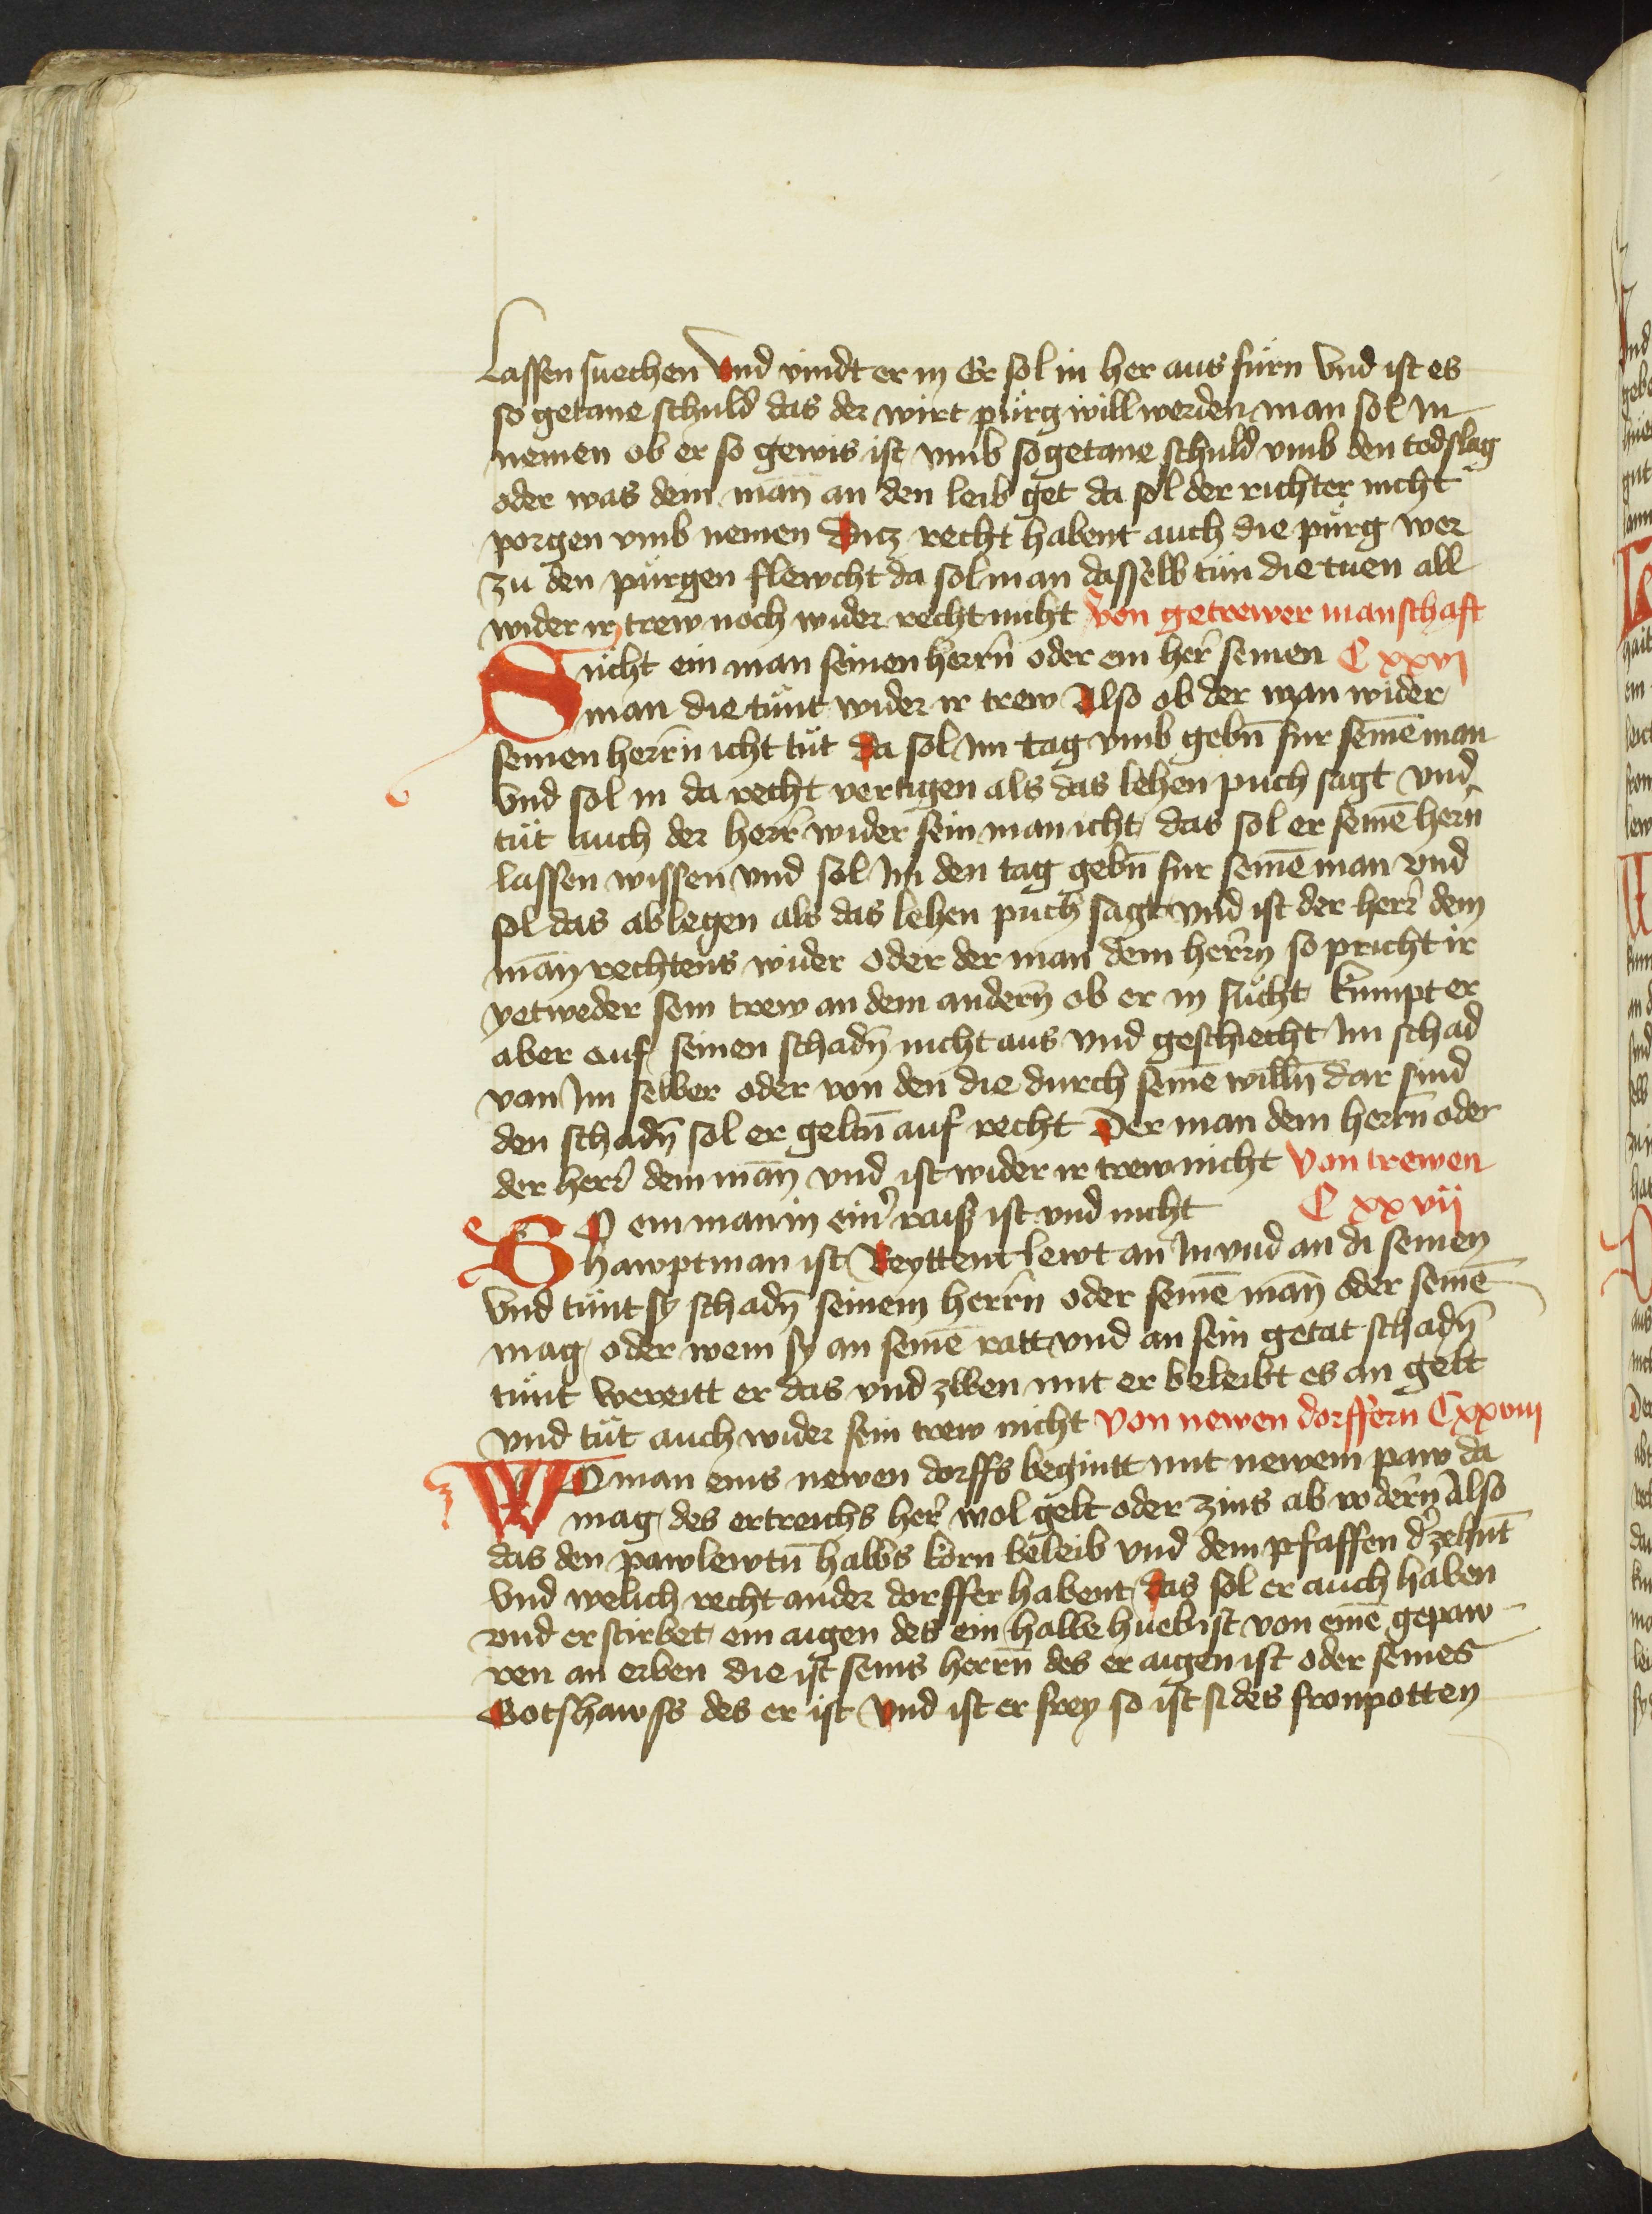 Lassen suechen Vnd vindt er in Er sol in her aus fürn Vnd ist es
so getane schuld das der wirt pürg will werden man sol in
nemen ob er so gewis ist vmb so getane schuld vmb den todslag
oder was dem man an den leib get da sol der richter nicht
porgen vmb nemen Ditz recht habent auch die pürg wer
zu den pürgen flewcht da sol man dasselb tün die tuen all
wider ir trew noch wider recht nicht Von getrewer manschaft
Sücht ein man seinen herrn̄ oder ein her̄ seinen C xxvj
man die tünt wider ir trew Also ob der man wider
seinen herrn̄ icht tüt Da sol im tag vmb gebn̄ fur seinē man
Vnd sol in da recht vertigen als das lehen puch sagt vnd
tüt auch der herr̄ wider sein man icht das sol er seinē hern̄
lassen wissen vnd sol Im den tag gebn̄ fur seinē man vnd
sol das ablegen als das lehen puch sagt vnd ist der herr̄ dem
man̄ rechtens wider oder der man dem herrn̄ so pricht ir
yetweder sein trew an dem andern̄ ob er in sücht kumpt er
aber auf seinen schadn̄ nicht aus vnd geschiecht Im schad
van Im selber oder von den die durch seinē willn̄ dar sind
den schadn̄ sol er geltn̄ auf recht Der man dem herrn̄ oder
der herr̄ dem man̄ vnd ist wider ir trew nicht Von trewen
SO ein man in ein̄ raiß ist vnd nicht C xxvij
hawptman ist Reyttent lewt an In vnd an di seinen
Vnd tünt sy schadn̄ seinem herrn̄ oder seinē man̄ oder seinē
mag oder wem sy an seinē ratt vnd an sein getat schadn̄
tünt wereitt er das vnd mit er beleibt es an gelt
vnd tüt auch wider sein trew nicht Von newen dorffern Cxxviij
WO man eins newen dorffs begintt mit newem paw da
mag des ertreichs her̄ wol gelt oder zins ab vodern̄ Also
das den pawlewtn̄ halbs korn beleib vnd dem pfaffen d̄ zehnt
Vnd welich recht ander dorffer habent das sol er auch haben
vnd erstirbet ein aigen des ein halbe hueb ist von einē gepaw
ren an erben die ist seins herrn̄ des er aigen ist oder seines
Gotshawss des er ist Vnd ist er frey so ist si des fronpotten